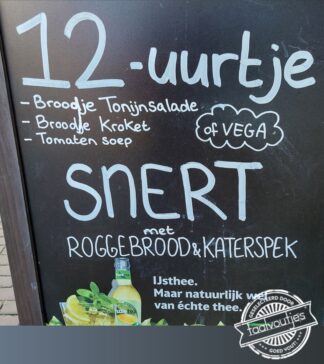 12-uurtje
- Broodje Tonijnsalade
- Broodje Kroket
- Tomaten soep
of VEGA
SNERT
met
ROGGEBROOD & KATERSPEK
IJsthee.
Maar natuurlijk wel
van échte thee.
taalvoutjes
GOED VOUT!